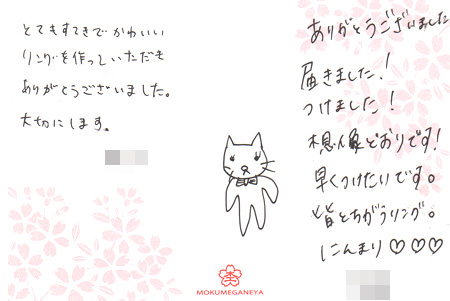 とてもすてきでかわいい
リングを作っていただき
ありがとうございました。
大切にします。
ありがとうございました
届きました!
つけました!
想像どおりです!
早くつけたいです。
皆とちがうリング。
にんまり♡♡♡
MOKUMEGANEYA